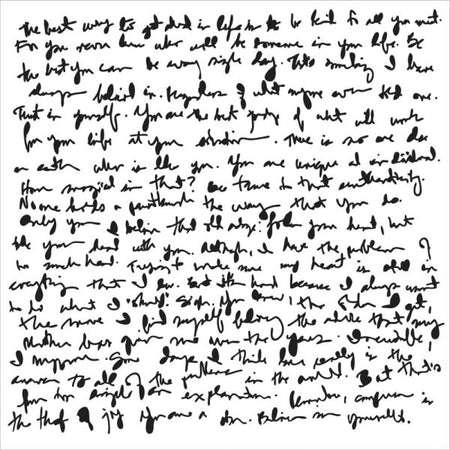 The best way to get ahead in life is to be kind to all you meet.
For you never know who will be someone in your life. Be
the best you can be every single day. This something I have
always believed in. Regardless of what anyone ever told me.
Trust in yourself. You are the best judge of what will work
for you life at your. There is no one else
on earth who is like you. You are unique and individual.
How magical is that? Be true to that authenticity.
No one holds a the way that you do.
Only you. I believe that old adage: follow your heart, but
take your head with you. Although, I have the problem of
so much head. Trying to make sure my heart is in
everything that I do. hard because I always want
to do what I "should". Sigh. You know, the older I get,
the more I find myself the that my
mother over the years. Invariably,
I suppose. Some days I think love really is the
answer to all of the problems in the world. But this is
far too simple for an explanation. confusion is
the thief of joy. You are a star. Believe in yourself.